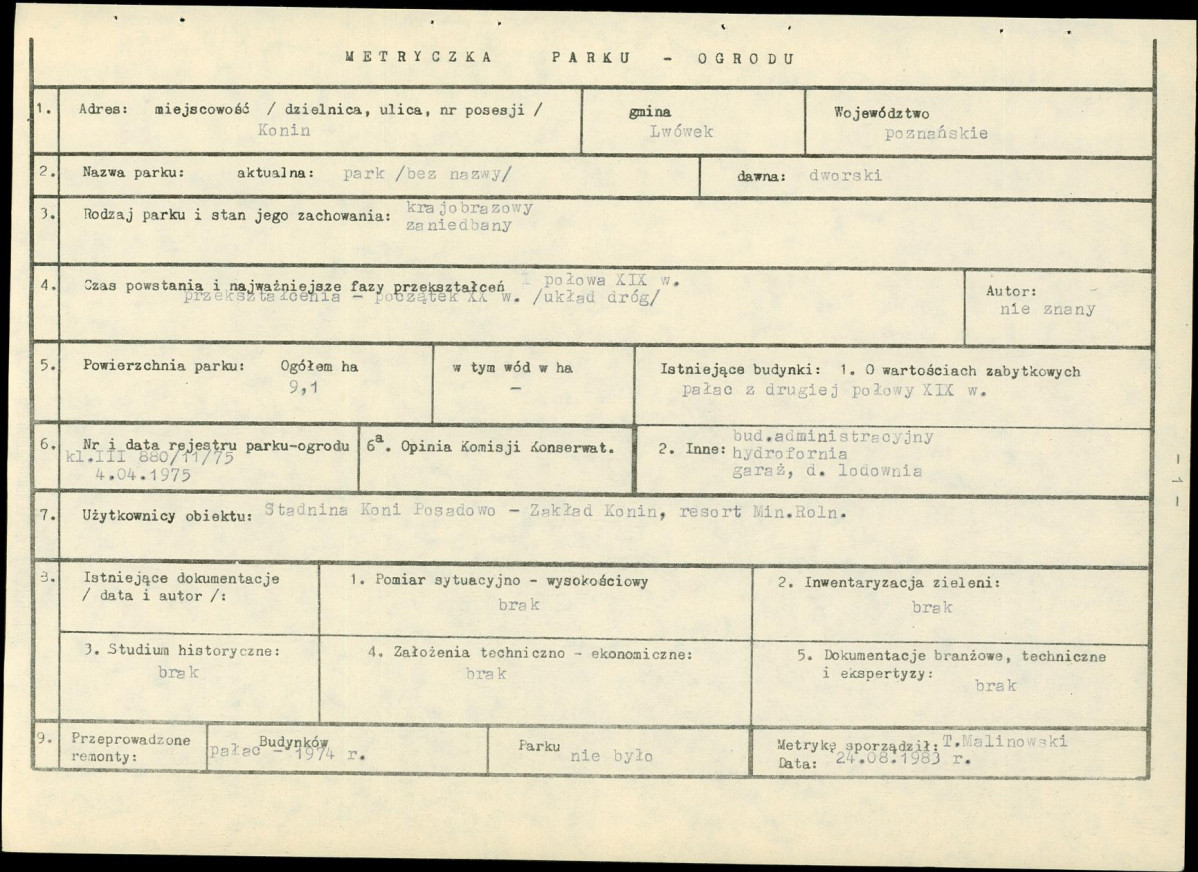 METRYCZKA PARKU - OGRODU
1. Adres: miejscowość / dzielnica, ulica, nr posesji /
Konin
gmina
Lwówek
Województwo
poznańskie
2. Nazwa parku: aktualna: park /bez nazwy/
dawna: dworski
3. Rodzaj parku i stan jego zachowania: krajobrazowy
zaniedbany
4. Czas powstania i najważniejsze fazy przekształceń I połowa XIX w.
przekształcenia - początek XX w. /układ dróg/
Autor:
nie znany
5. Powierzchnia parku: Ogółem ha
9,1
w tym wód w ha
-
Istniejące budynki: 1. O wartościach zabytkowych
pałac z drugiej połowy XIX w.
6. Nr i data rejestru parku-ogrodu
kl.III 880/11/75
4.04.1975
6a. Opinia Komisji Konserwat.
2. Inne: bud.administracyjny
hydrofornia
garaż, d. lodownia
7. Użytkownicy obiektu: Stadnina Koni Posadowo - Zakład Konin, resort Min.Roln.
8. Istniejące dokumentacje
/ data i autor /:
1. Pomiar sytuacyjno - wysokościowy
brak
2. Inwentaryzacja zieleni:
brak
3. Studium historyczne:
brak
4. Założenia techniczno - ekonomiczne:
brak
5. Dokumentacje branżowe, techniczne
i ekspertyzy:
brak
9. Przeprowadzone
remonty:
Budynków
pałac - 1974 r.
Parku
nie było
Metrykę sporządził: T.Malinowski
Data: 24.08.1983 r.
- 1 -